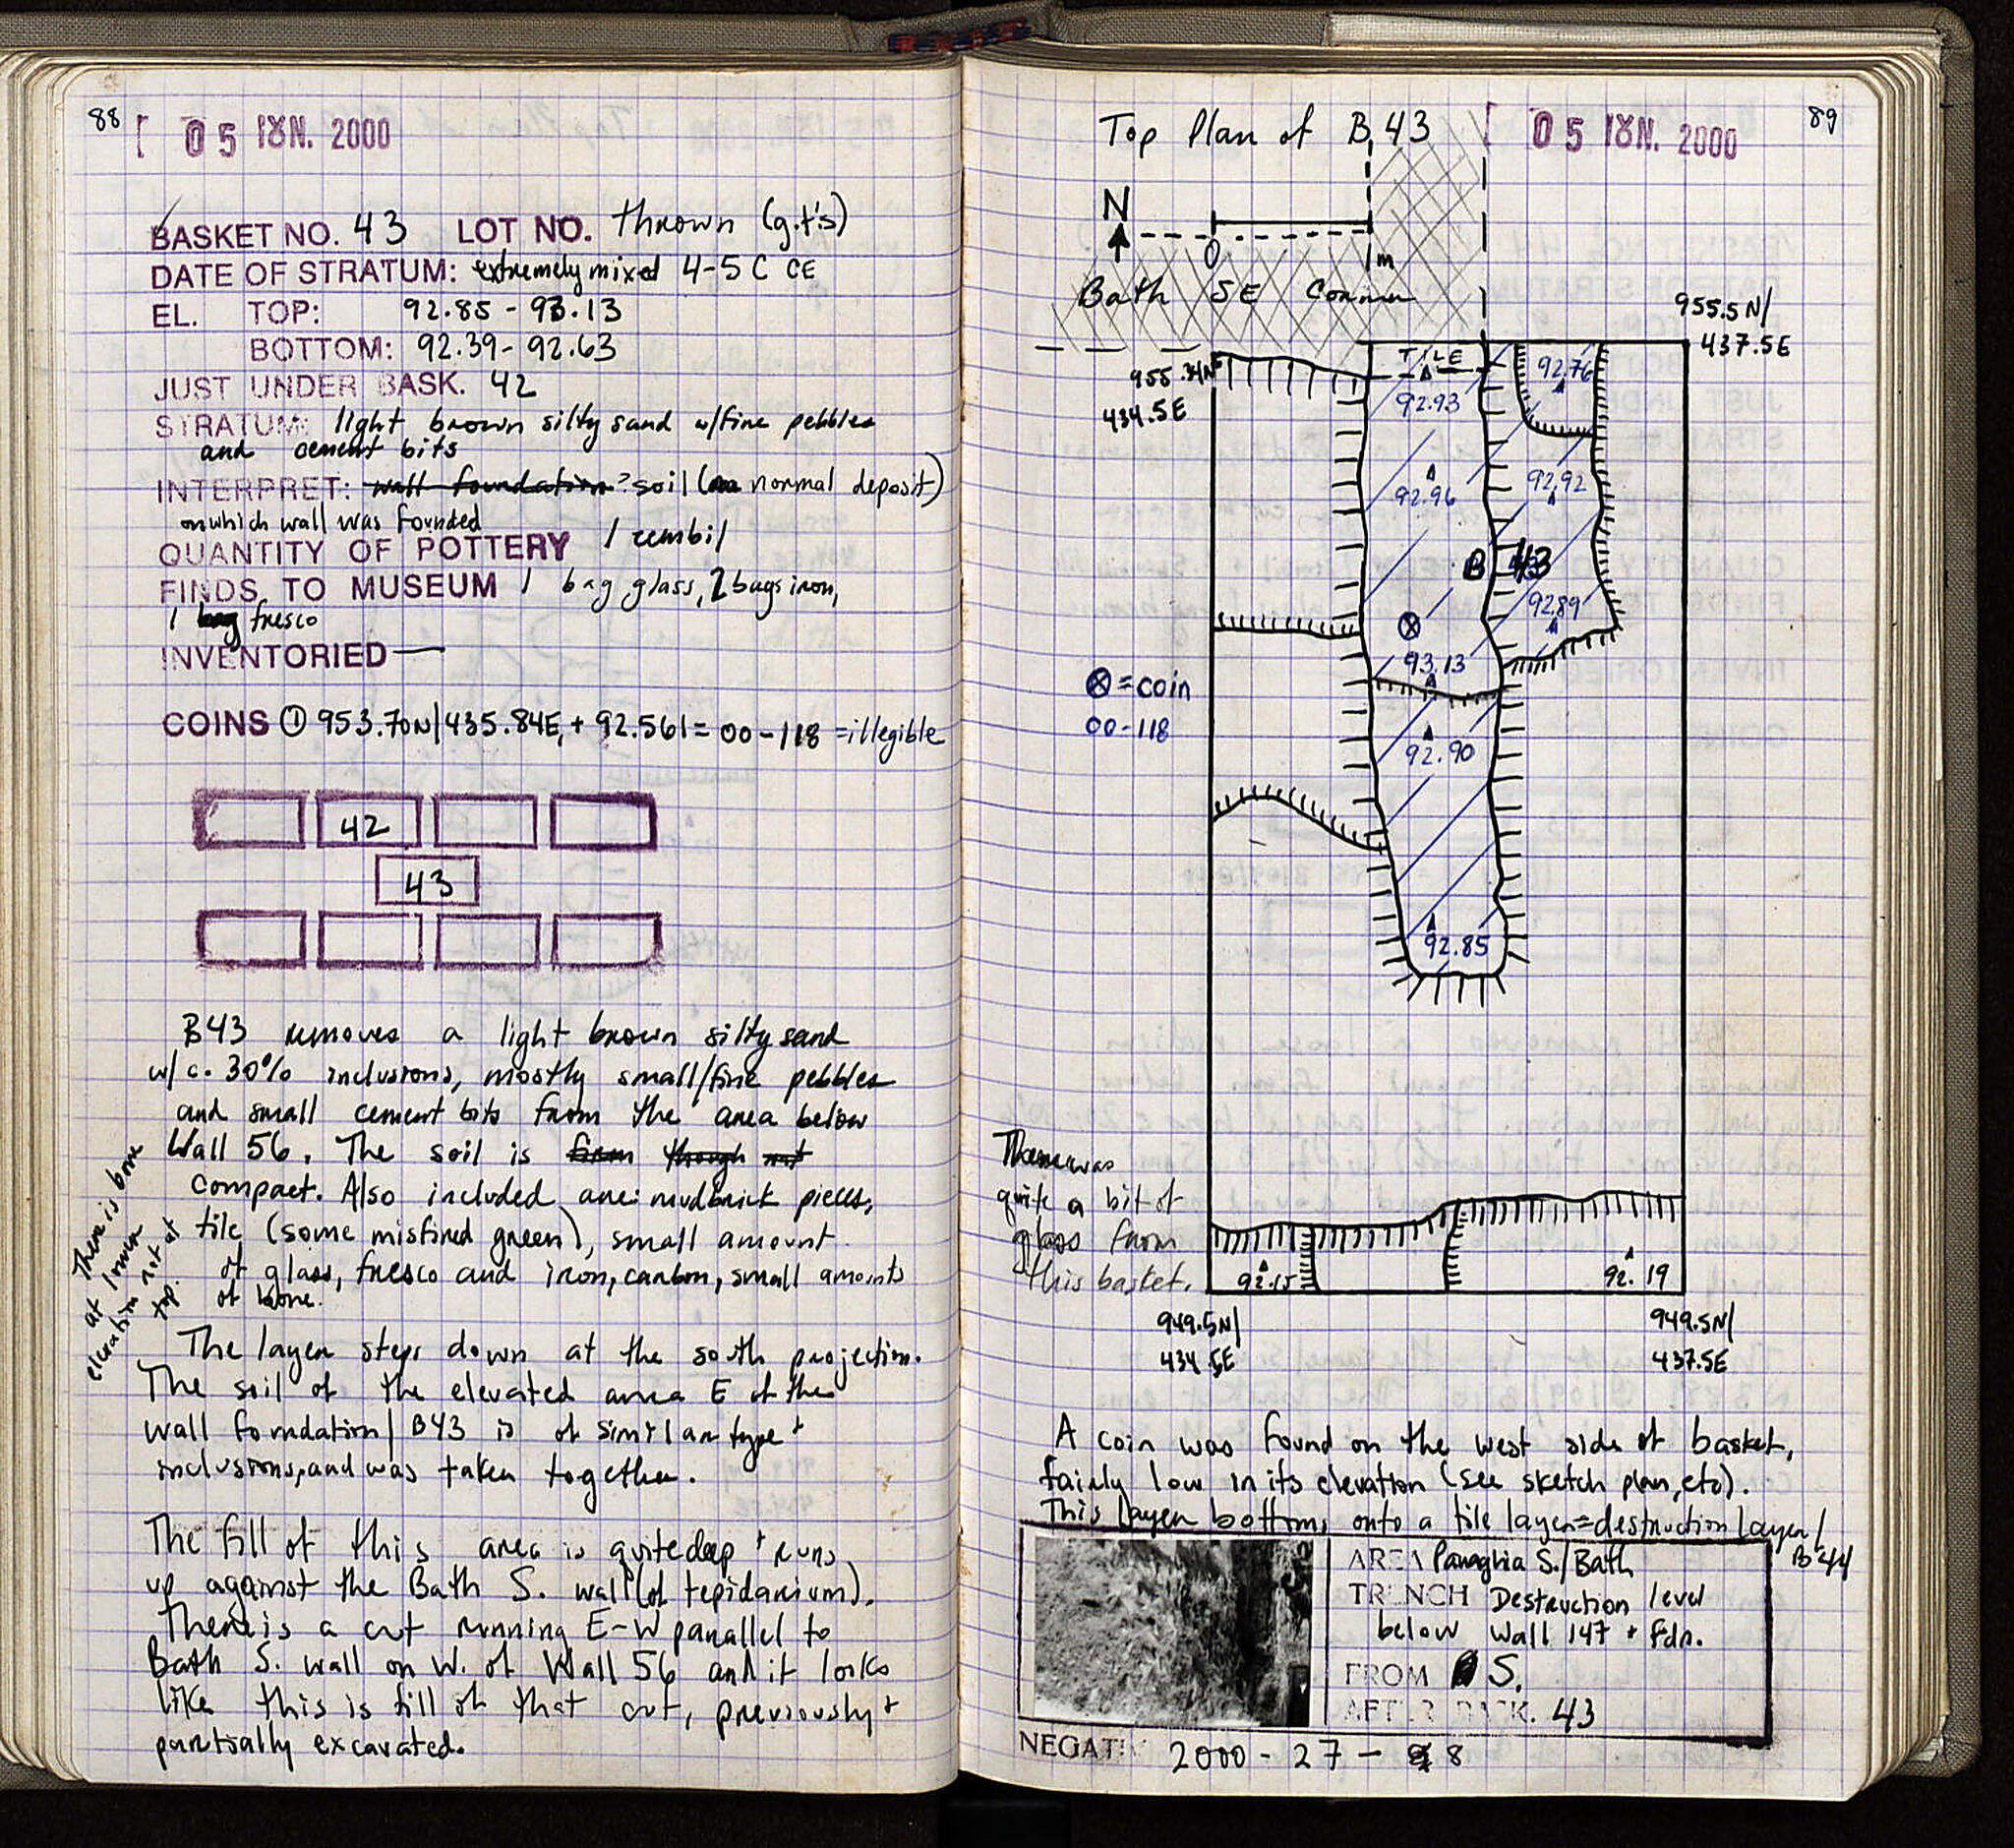 88
05 ΙȢΝ. 2000
BASKET NO. 43 LOT NO. thrown (g.t.'s)
DATE OF STRATUM: extremely mixed 4-5 C CE
EL. TOP: 92.85 - 93.13
BOTTOM: 92.39 - 92.63
JUST UNDER BASK. 42
STRATUM: light brown silty sand w/fine pebbles
and cement bits
INTERPRET: wall foundation? soil (normal deposit)
on which wall was founded
QUANTITY OF POTTERY 1 zembil
FINDS TO MUSEUM 1 bag glass, 2 bags iron,
1 bag fresco
INVENTORIED —
COINS ① 953.70N/435.84E, + 92.561 = 00-118 = illegible
42
43
B43 removes a light brown silty sand
w/ c. 30% inclusions, mostly small/fine pebbles
and small cement bits from the area below
Wall 56. The soil is firm though not
compact. Also included are: mudbrick pieces,
tile (some misfired green), small amount
of glass, fresco and iron, carbon, small amounts
of bone.
There is bone
at lower
elevation not at
top.
The layer steps down at the south projection.
The soil of the elevated area E of the
wall foundation/B43 is of similar type +
inclusions, and was taken together.
The fill of this area is quite deep + runs
up against the Bath S. wall (of tepidarium).
There is a cut running E-W parallel to
Bath S. wall on W. of Wall 56 and it looks
like this is fill of that cut, previously +
partially excavated.
89
Top Plan of B.43
05 ΙȢΝ. 2000
N
0 1m
Bath SE Corner
955.5N/
437.5E
955.34N
434.5E
TILE
92.93
92.76
92.96
92.92
B 43
92.89
93.13
⊗ = coin
00-118
92.90
92.85
There was
quite a bit of
glass from
this basket.
92.15
92.19
949.5N/
434.5E
949.5N/
437.5E
A coin was found on the west side of basket,
fairly low in its elevation (see sketch plan, etc).
This layer bottoms onto a tile layer = destruction layer/
B44
AREA Panaghia S./Bath
TRENCH Destruction level
below Wall 147 + fdn.
FROM S.
AFTER BASK. 43
NEGATIV 2000 - 27 - 8